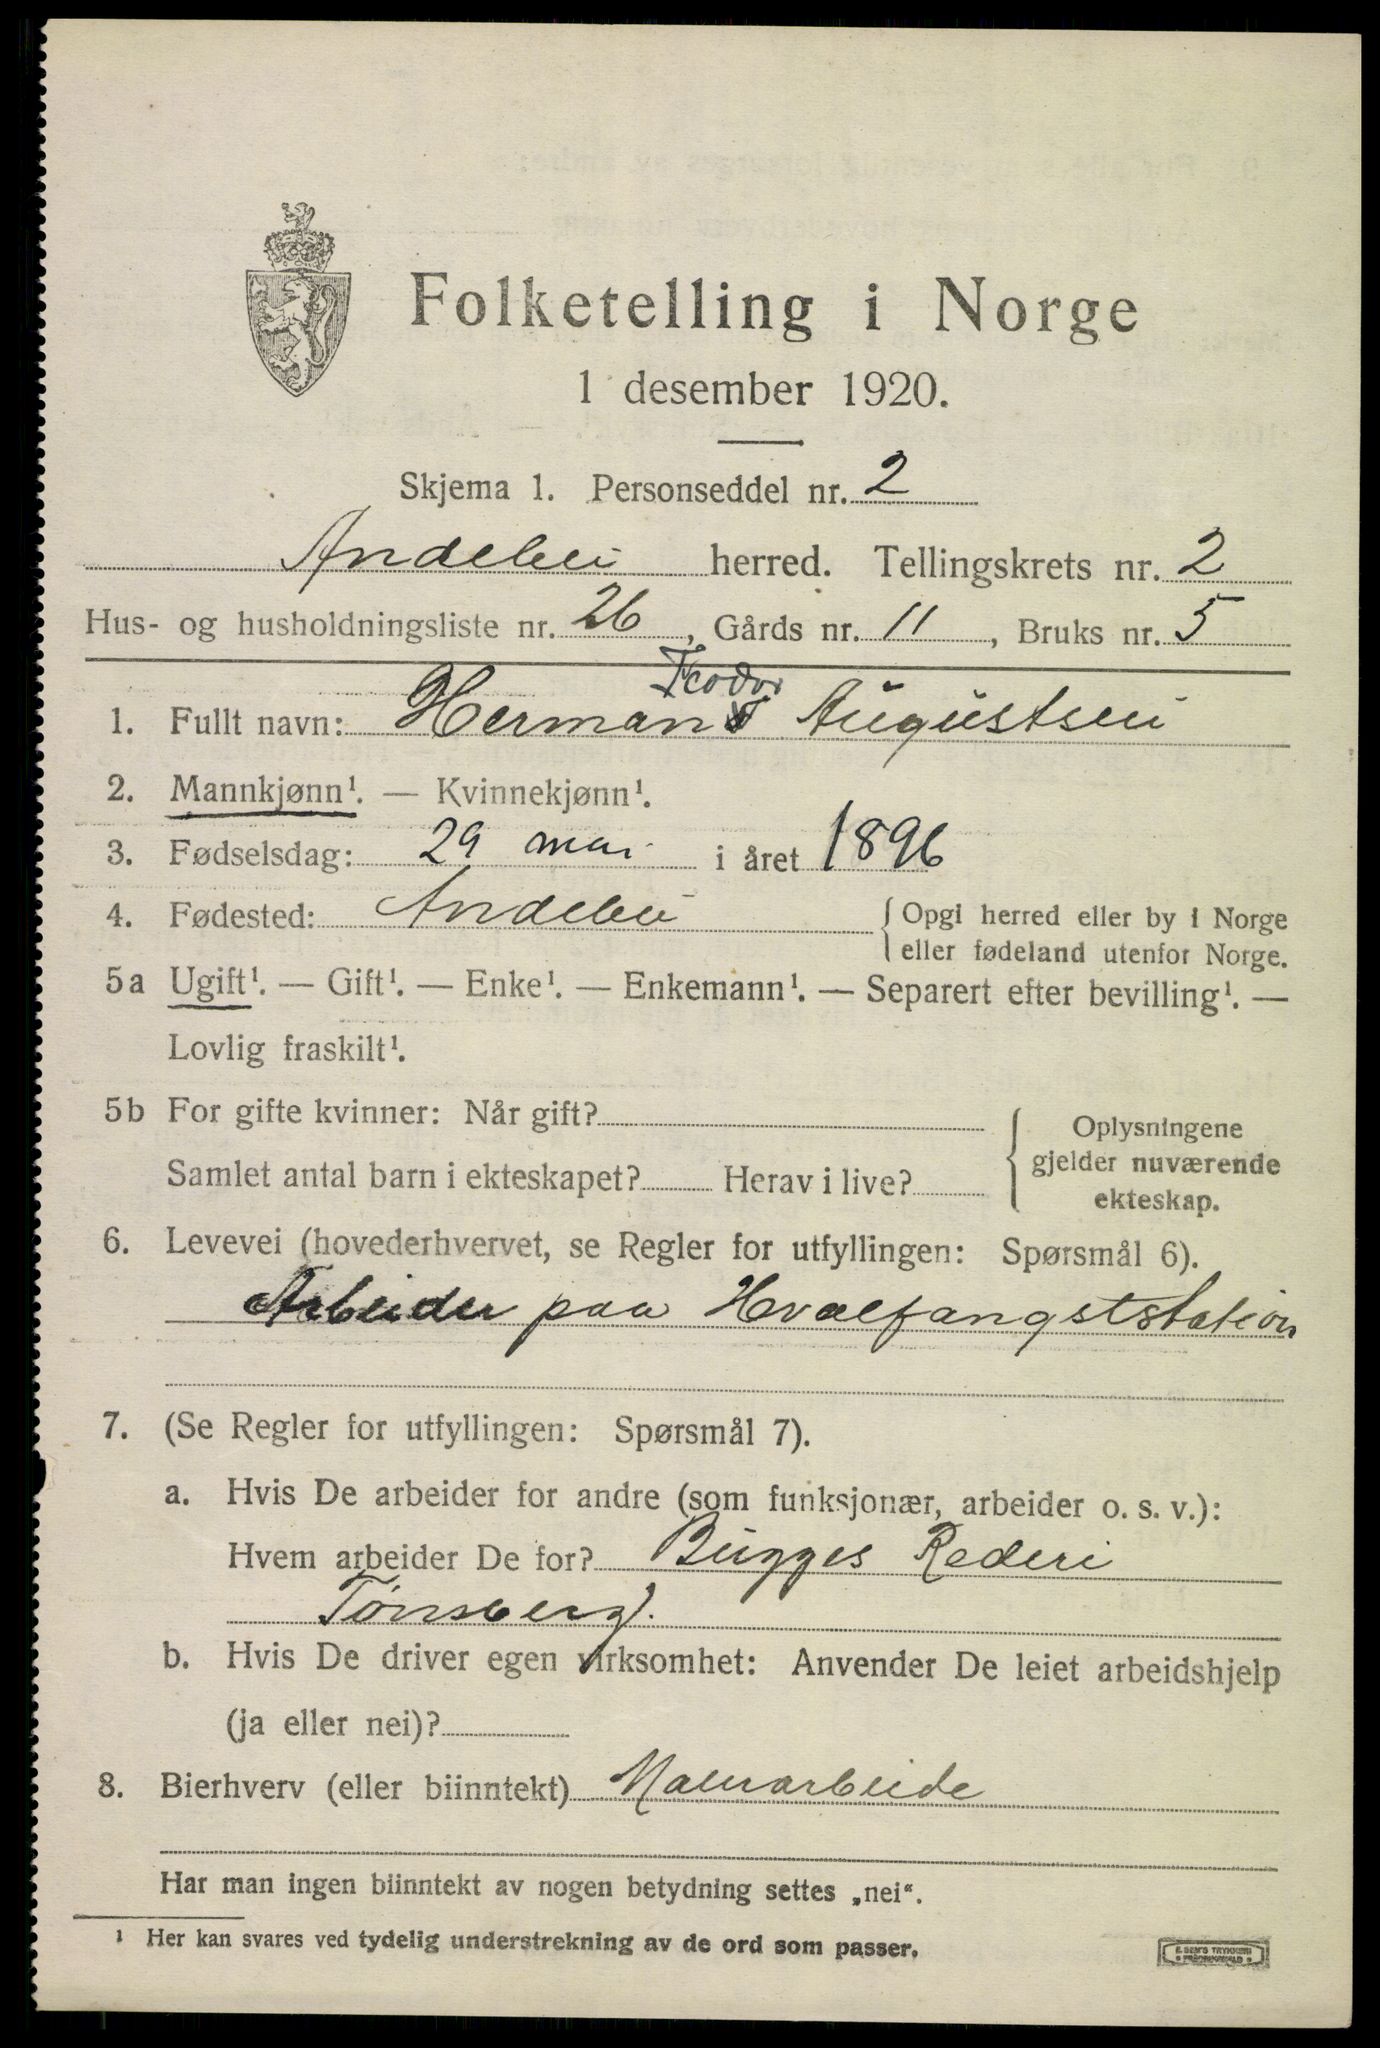 Folketelling i Norge
1 desember 1920.
Skjema 1. Personseddel nr. 2
Andebu herred. Tellingskrets nr. 2
Hus- og husholdningsliste nr. 26, Gårds nr. 11, Bruks nr. 5
Teodor
1. Fullt navn: Herman T Augustsen
2. Mannkjønn¹. — Kvinnekjønn¹.
3. Fødselsdag: 29 mai i året 1896
4. Fødested: Andebu { Opgi herred eller by i Norge
eller fødeland utenfor Norge.
5a Ugift¹. — Gift¹. — Enke¹. — Enkemann¹. — Separert efter bevilling¹. —
Lovlig fraskilt¹.
5b For gifte kvinner: Når gift? { Oplysningene
gjelder nuværende
Samlet antal barn i ekteskapet? Herav i live?
ekteskap.
6. Levevei (hovederhvervet, se Regler for utfyllingen: Spørsmål 6).
Arbeider paa Hvalfangststation
7. (Se Regler for utfyllingen: Spørsmål 7).
a. Hvis De arbeider for andre (som funksjonær, arbeider o. s. v.):
Hvem arbeider De for? Bugges Rederi
Tønsberg.
b. Hvis De driver egen virksomhet: Anvender De leiet arbeidshjelp
(ja eller nei)?
8. Bierhverv (eller biinntekt) Malerarbeide
Har man ingen biinntekt av nogen betydning settes „nei“.
¹ Her kan svares ved tydelig understrekning av de ord som passer.
E. SEM'S TRYKKERI
FREDRIKSHALD